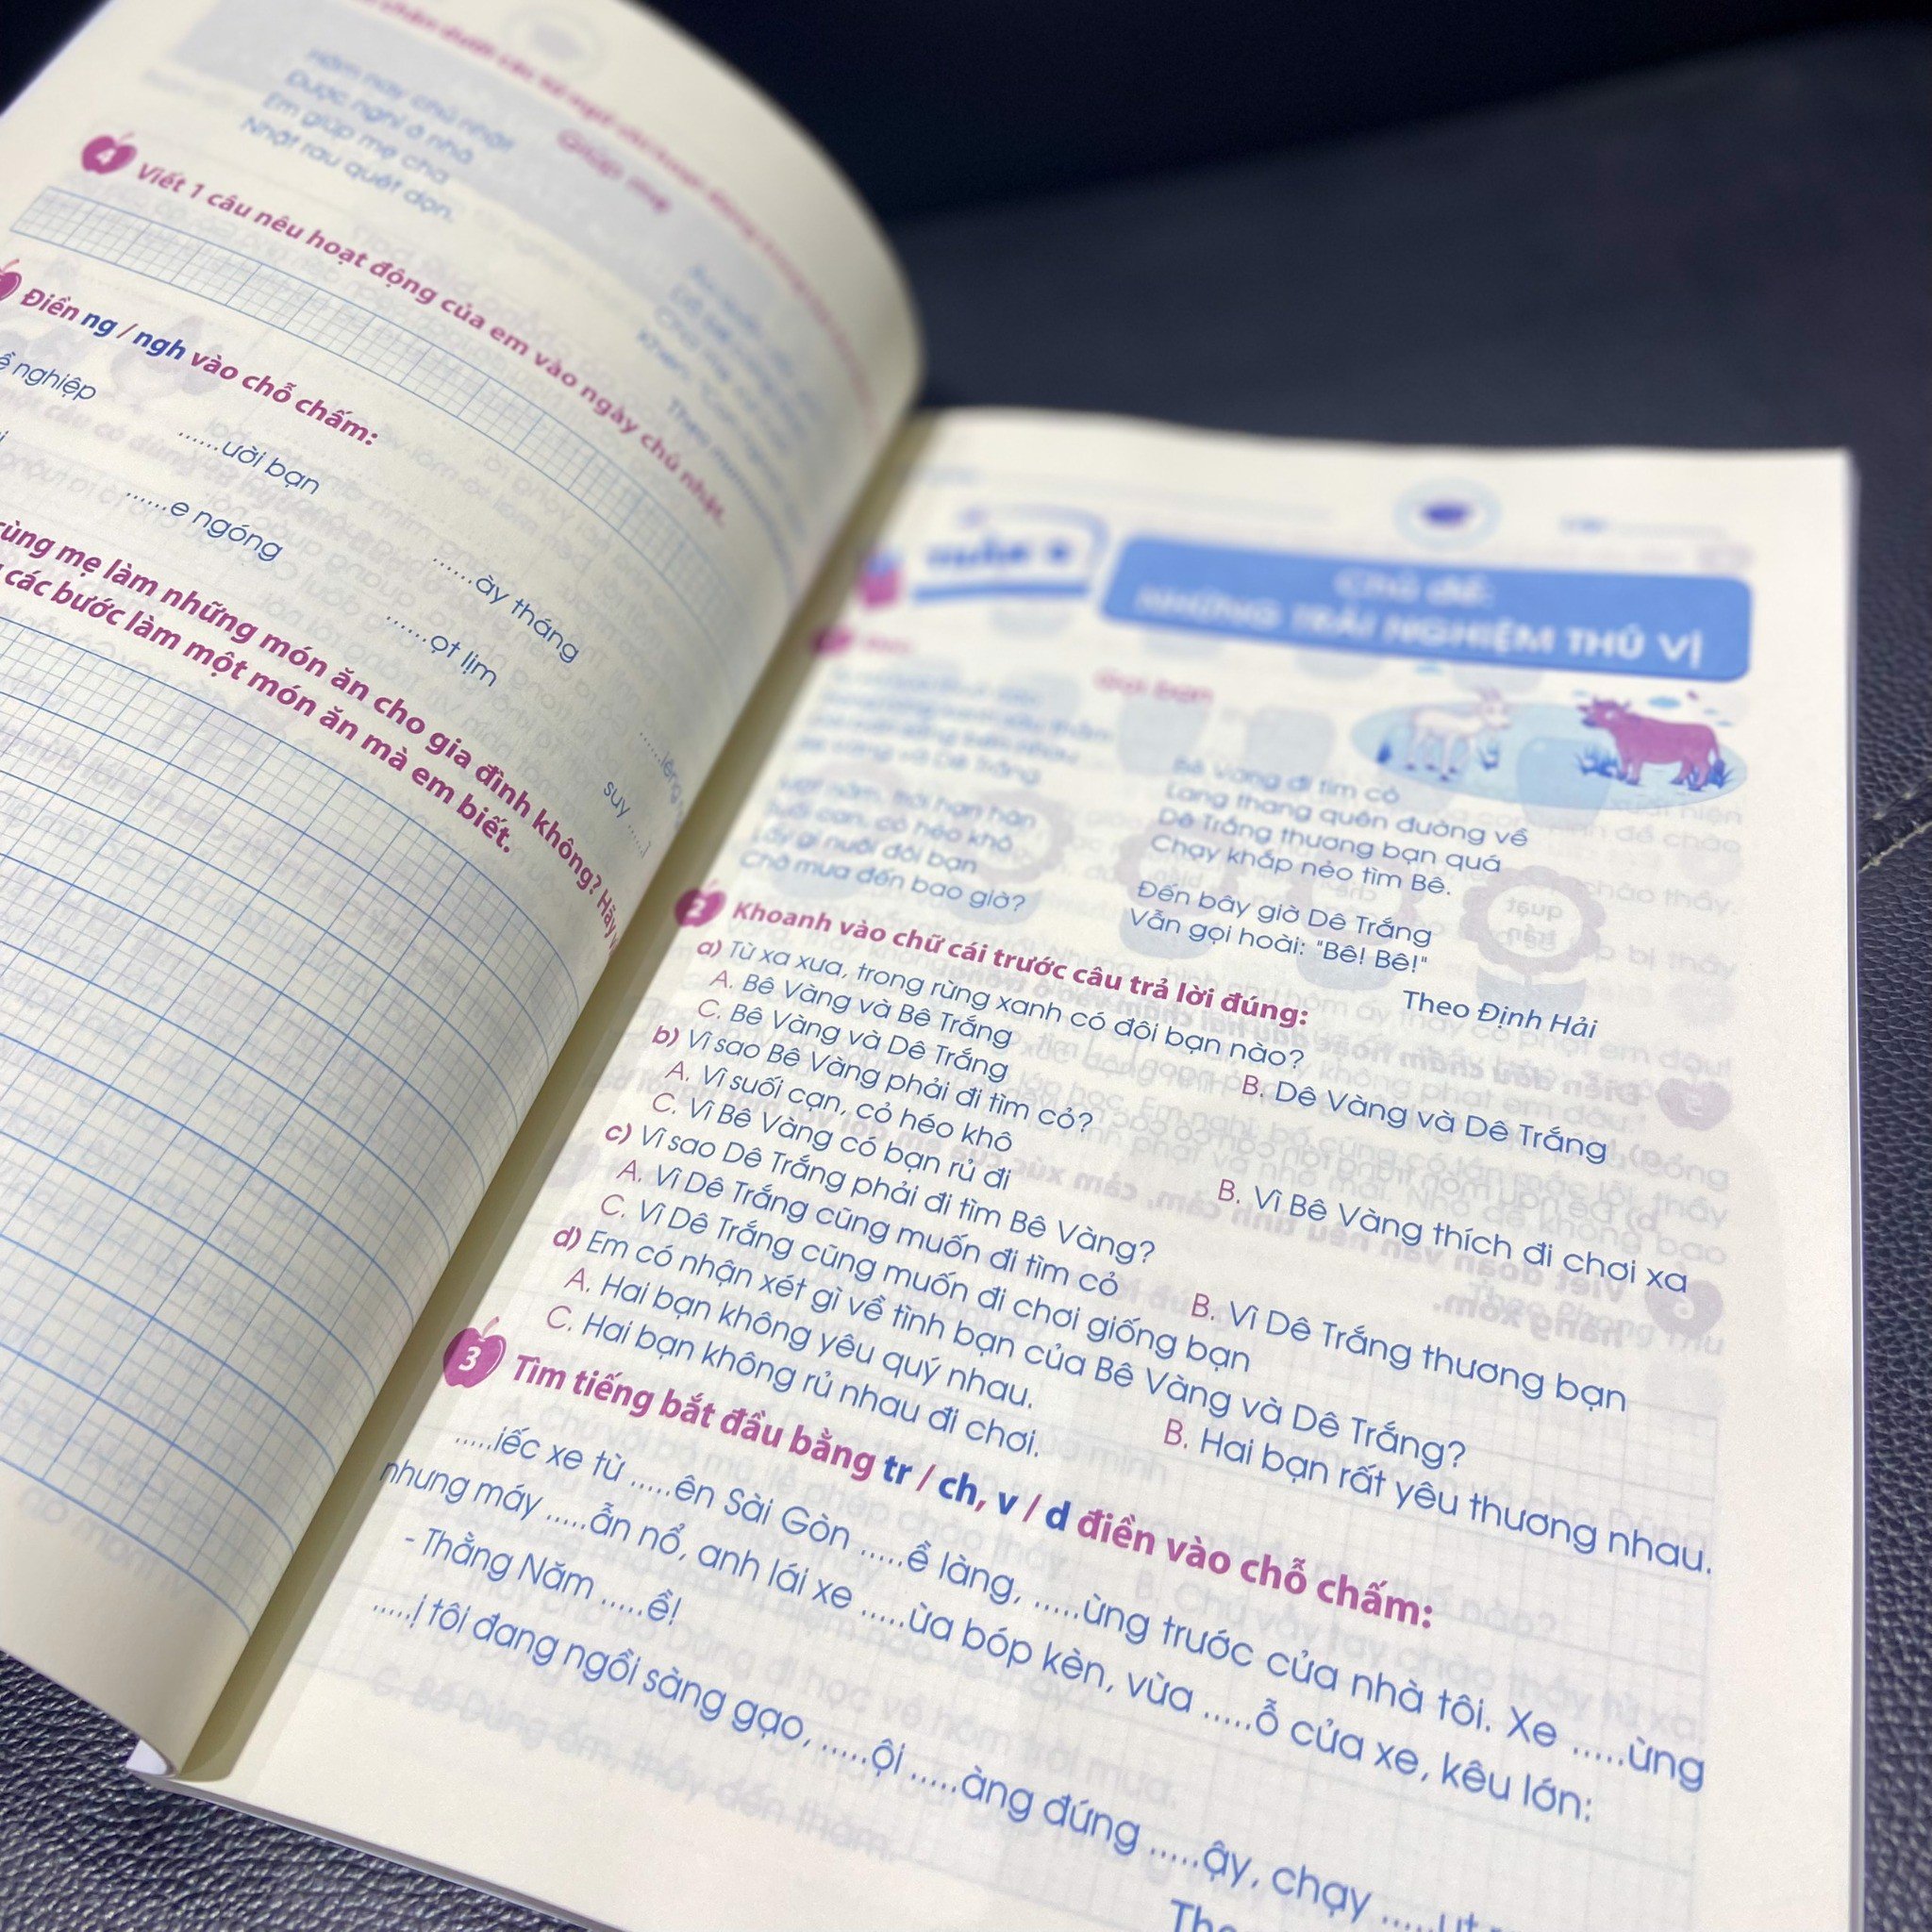 Giúp mẹ
Hôm nay chủ nhật
Được nghỉ ở nhà
Em giúp mẹ cha
Nhặt rau quét dọn.
4 Viết 1 câu nêu hoạt động của em vào ngày chủ nhật.
Điền ng / ngh vào chỗ chấm:
nghiệp
......ười bạn
......ày tháng
......e ngóng
......ọt lịm
suy ......ĩ
cùng mẹ làm những món ăn cho gia đình không? Hãy
các bước làm một món ăn mà em biết.
Chủ đề:
NHỮNG TRẢI NGHIỆM THÚ VỊ
Gọi bạn
Bê Vàng và Dê Trắng.
Một năm, trời hạn hán
Suối cạn, cỏ héo khô
Lấy gì nuôi đôi bạn
Chờ mưa đến bao giờ?
Bê Vàng đi tìm cỏ
Lang thang quên đường về
Dê Trắng thương bạn quá
Chạy khắp nẻo tìm Bê.
Đến bây giờ Dê Trắng
Vẫn gọi hoài: "Bê! Bê!"
Theo Định Hải
2 Khoanh vào chữ cái trước câu trả lời đúng:
a) Từ xa xưa, trong rừng xanh có đôi bạn nào?
A. Bê Vàng và Bê Trắng
B. Dê Vàng và Dê Trắng
C. Bê Vàng và Dê Trắng
b) Vì sao Bê Vàng phải đi tìm cỏ?
A. Vì suối cạn, cỏ héo khô
B. Vì Bê Vàng thích đi chơi xa
C. Vì Bê Vàng có bạn rủ đi
c) Vì sao Dê Trắng phải đi tìm Bê Vàng?
A. Vì Dê Trắng cũng muốn đi tìm cỏ
B. Vì Dê Trắng thương bạn
C. Vì Dê Trắng cũng muốn đi chơi giống bạn
d) Em có nhận xét gì về tình bạn của Bê Vàng và Dê Trắng?
A. Hai bạn không yêu quý nhau.
B. Hai bạn rất yêu thương nhau.
C. Hai bạn không rủ nhau đi chơi.
3 Tìm tiếng bắt đầu bằng tr / ch, v / d điền vào chỗ chấm:
.....iếc xe từ .....ên Sài Gòn .....ề làng, .....ừng trước của nhà tôi. Xe .....ừng
nhưng máy .....ẫn nổ, anh lái xe .....ừa bóp kèn, vừa .....ỗ cửa xe, kêu lớn:
- Thằng Năm .....ề!
.....ị tôi đang ngồi sàng gạo, .....ội .....àng đứng .....ậy, chạy